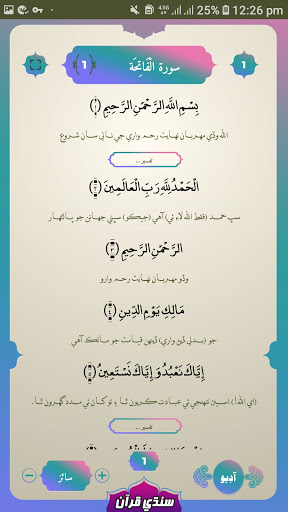 25% 12:26 pm
1 سورة الْفَاتِحَة ﴿1﴾
بِسْمِ اللَّهِ الرَّحْمَٰنِ الرَّحِيمِ ﴿١﴾
الله وڏي مهربان نهايت رحم واري جي نالي سان شروع
تفسير ...
الْحَمْدُ لِلَّهِ رَبِّ الْعَالَمِينَ ﴿٢﴾
سڀ حمد (فقط الله لاءِ ئي) آهي (جيڪو) سڀني جهانن جو پالڻهار
الرَّحْمَٰنِ الرَّحِيمِ ﴿٣﴾
وڏو مهربان نهايت رحم وارو
مَالِكِ يَوْمِ الدِّينِ ﴿٤﴾
جو (بدلي ڏيڻ واري) ڏينهن قيامت جو مالڪ آهي
إِيَّاكَ نَعْبُدُ وَإِيَّاكَ نَسْتَعِينُ ﴿٥﴾
(اي الله!) اسين تنهنجي ئي عبادت ڪريون ٿا ۽ توکان ئي مدد گهرون ٿا.
تفسير ...
آڊيو 1 سائز
سنڌي قرآن